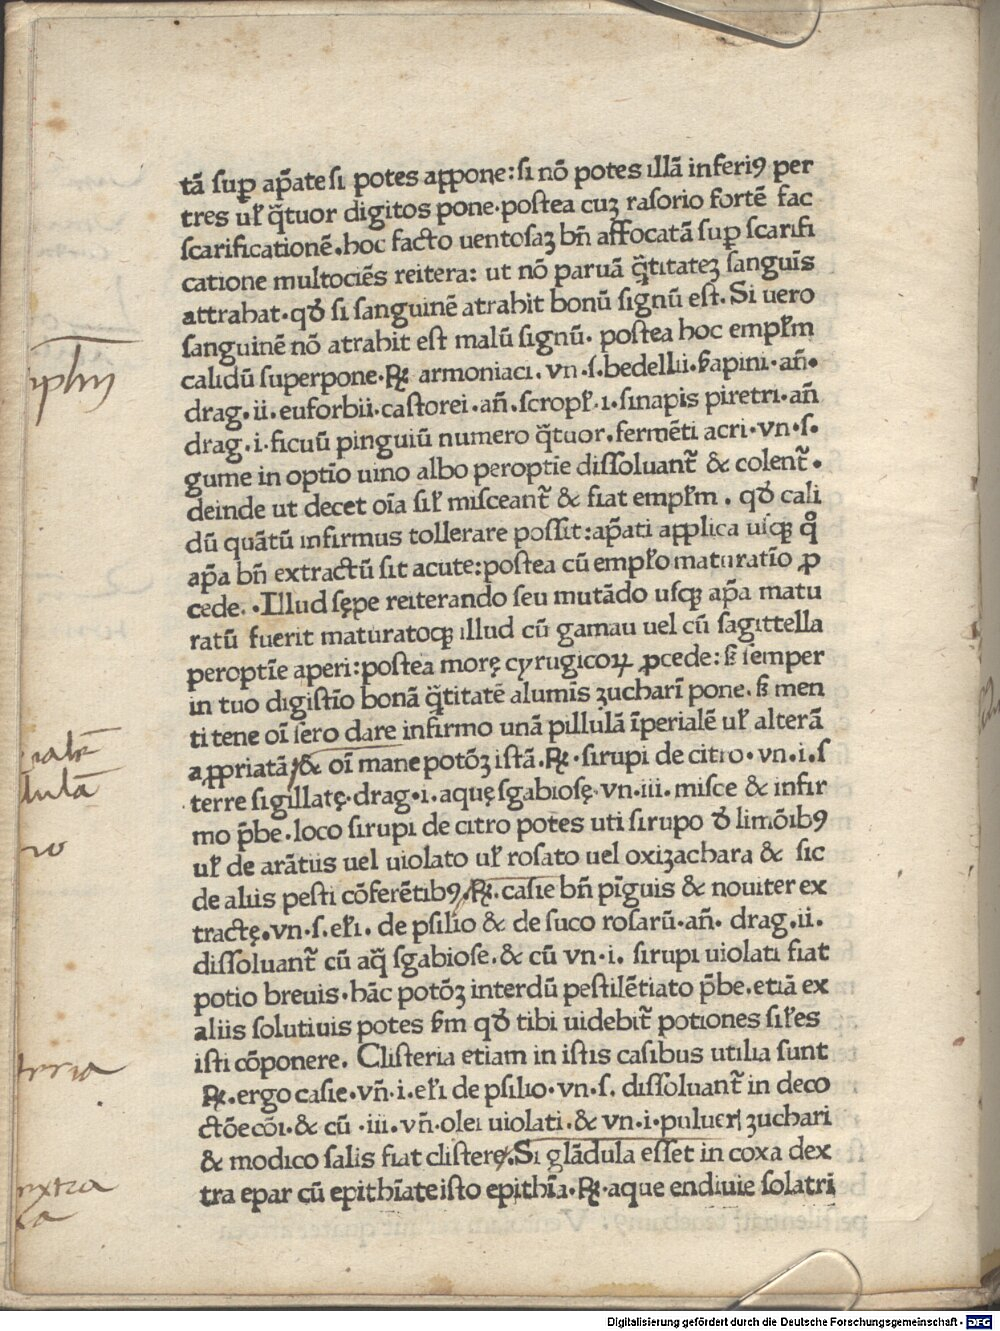 tā sup̱ ap̄ate si potes appone: si nō potes illā inferiꝰ per
tres uł q̄tuor digitos pone·postea cuꝫ rasorio fortē fac
scarificationē.hoc facto uentosaꝫ bn̄ affocatā sup̱ scarifi
catione multociēs reitera: ut nō paruā q̄titateꝫ sanguīs
attrahat·qđ si sanguinē atrahit bonū signū est. Si uero
sanguinē nō atrahit est malū signū· postea hoc empłm
calidū superpone·℞ armoniaci. vn ·s·bedellii·ẜapini·an̄·
drag. ii. euforbii·castorei·an̄.scropł·i·sinapis piretri·an̄
drag·i·ficuū pinguiū numero q̄tuor.fermēti acri·vn·s·
gume in optīo uino albo peroptīe dissoluant̄ & colent̄·
deinde ut decet oīa sił misceant̄ & fiat empłm . qđ cali
dū quātū infirmus tollerare possit:ap̄ati applica usqꝫ qͦ
ap̄a bn̄ extractū sit acute:postea cū empło maturatīo ꝓ
cede. ·Illud sępe reiterando seu mutādo usqꝫ ap̄a matu
ratū fuerit maturatoqꝫ illud cū gamau uel cū sagittella
peroptīe aperi:postea morę cyrugicoꝝ ꝓcede: ẜ semper
in tuo digistīo bonā q̄titatē alumīs ꝫucharī pone. ẜ men
ti tene oī sero dare infirmo unā pillulā īperialē uł alterā
aꝓpriatā & oī mane potōꝫ istā.℞·sirupi de citro·vn·i.s
terre sigillatę·drag·i.aquę sgabiosę·vn·iii·misce & infir
mo p̄be·loco sirupi de citro potes uti sirupo đ limōibꝰ
uł de arātiis uel uiolato uł rosato uel oxiꝫachara & sic
de aliis pesti cōferētibꝰ.℞.casie bn̄ pīguis & nouiter ex
tractę.vn·s.ełi. de psilio & de suco rosarū·an̄· drag.ii.
dissoluant̄ cū aq̄ sgabiose.& cū vn·i. sirupi uiolati fiat
potio breuis·hāc potōꝫ interdū pestilētiato p̄be.etiā ex
aliis solutiuis potes ẜm qđ tibi uidebit̄ potiones siłes
isti cōponere. Clisteria etiam in istis casibus utilia sunt
℞.ergo casie·vn̄·i·ełi de psilio·vn·s. dissoluant̄ in deco
ctōe cōi·& cū ·iii·vn̄·olei uiolati.& vn·i·pulueri ꝫuchari
& modico salis fiat clisterę.Si glādula esset in coxa dex
tra epar cū epithīate isto epithīa·℞·aque endiuie solatri
Digitalisierung gefördert durch die Deutsche Forschungsgemeinschaft - DFG